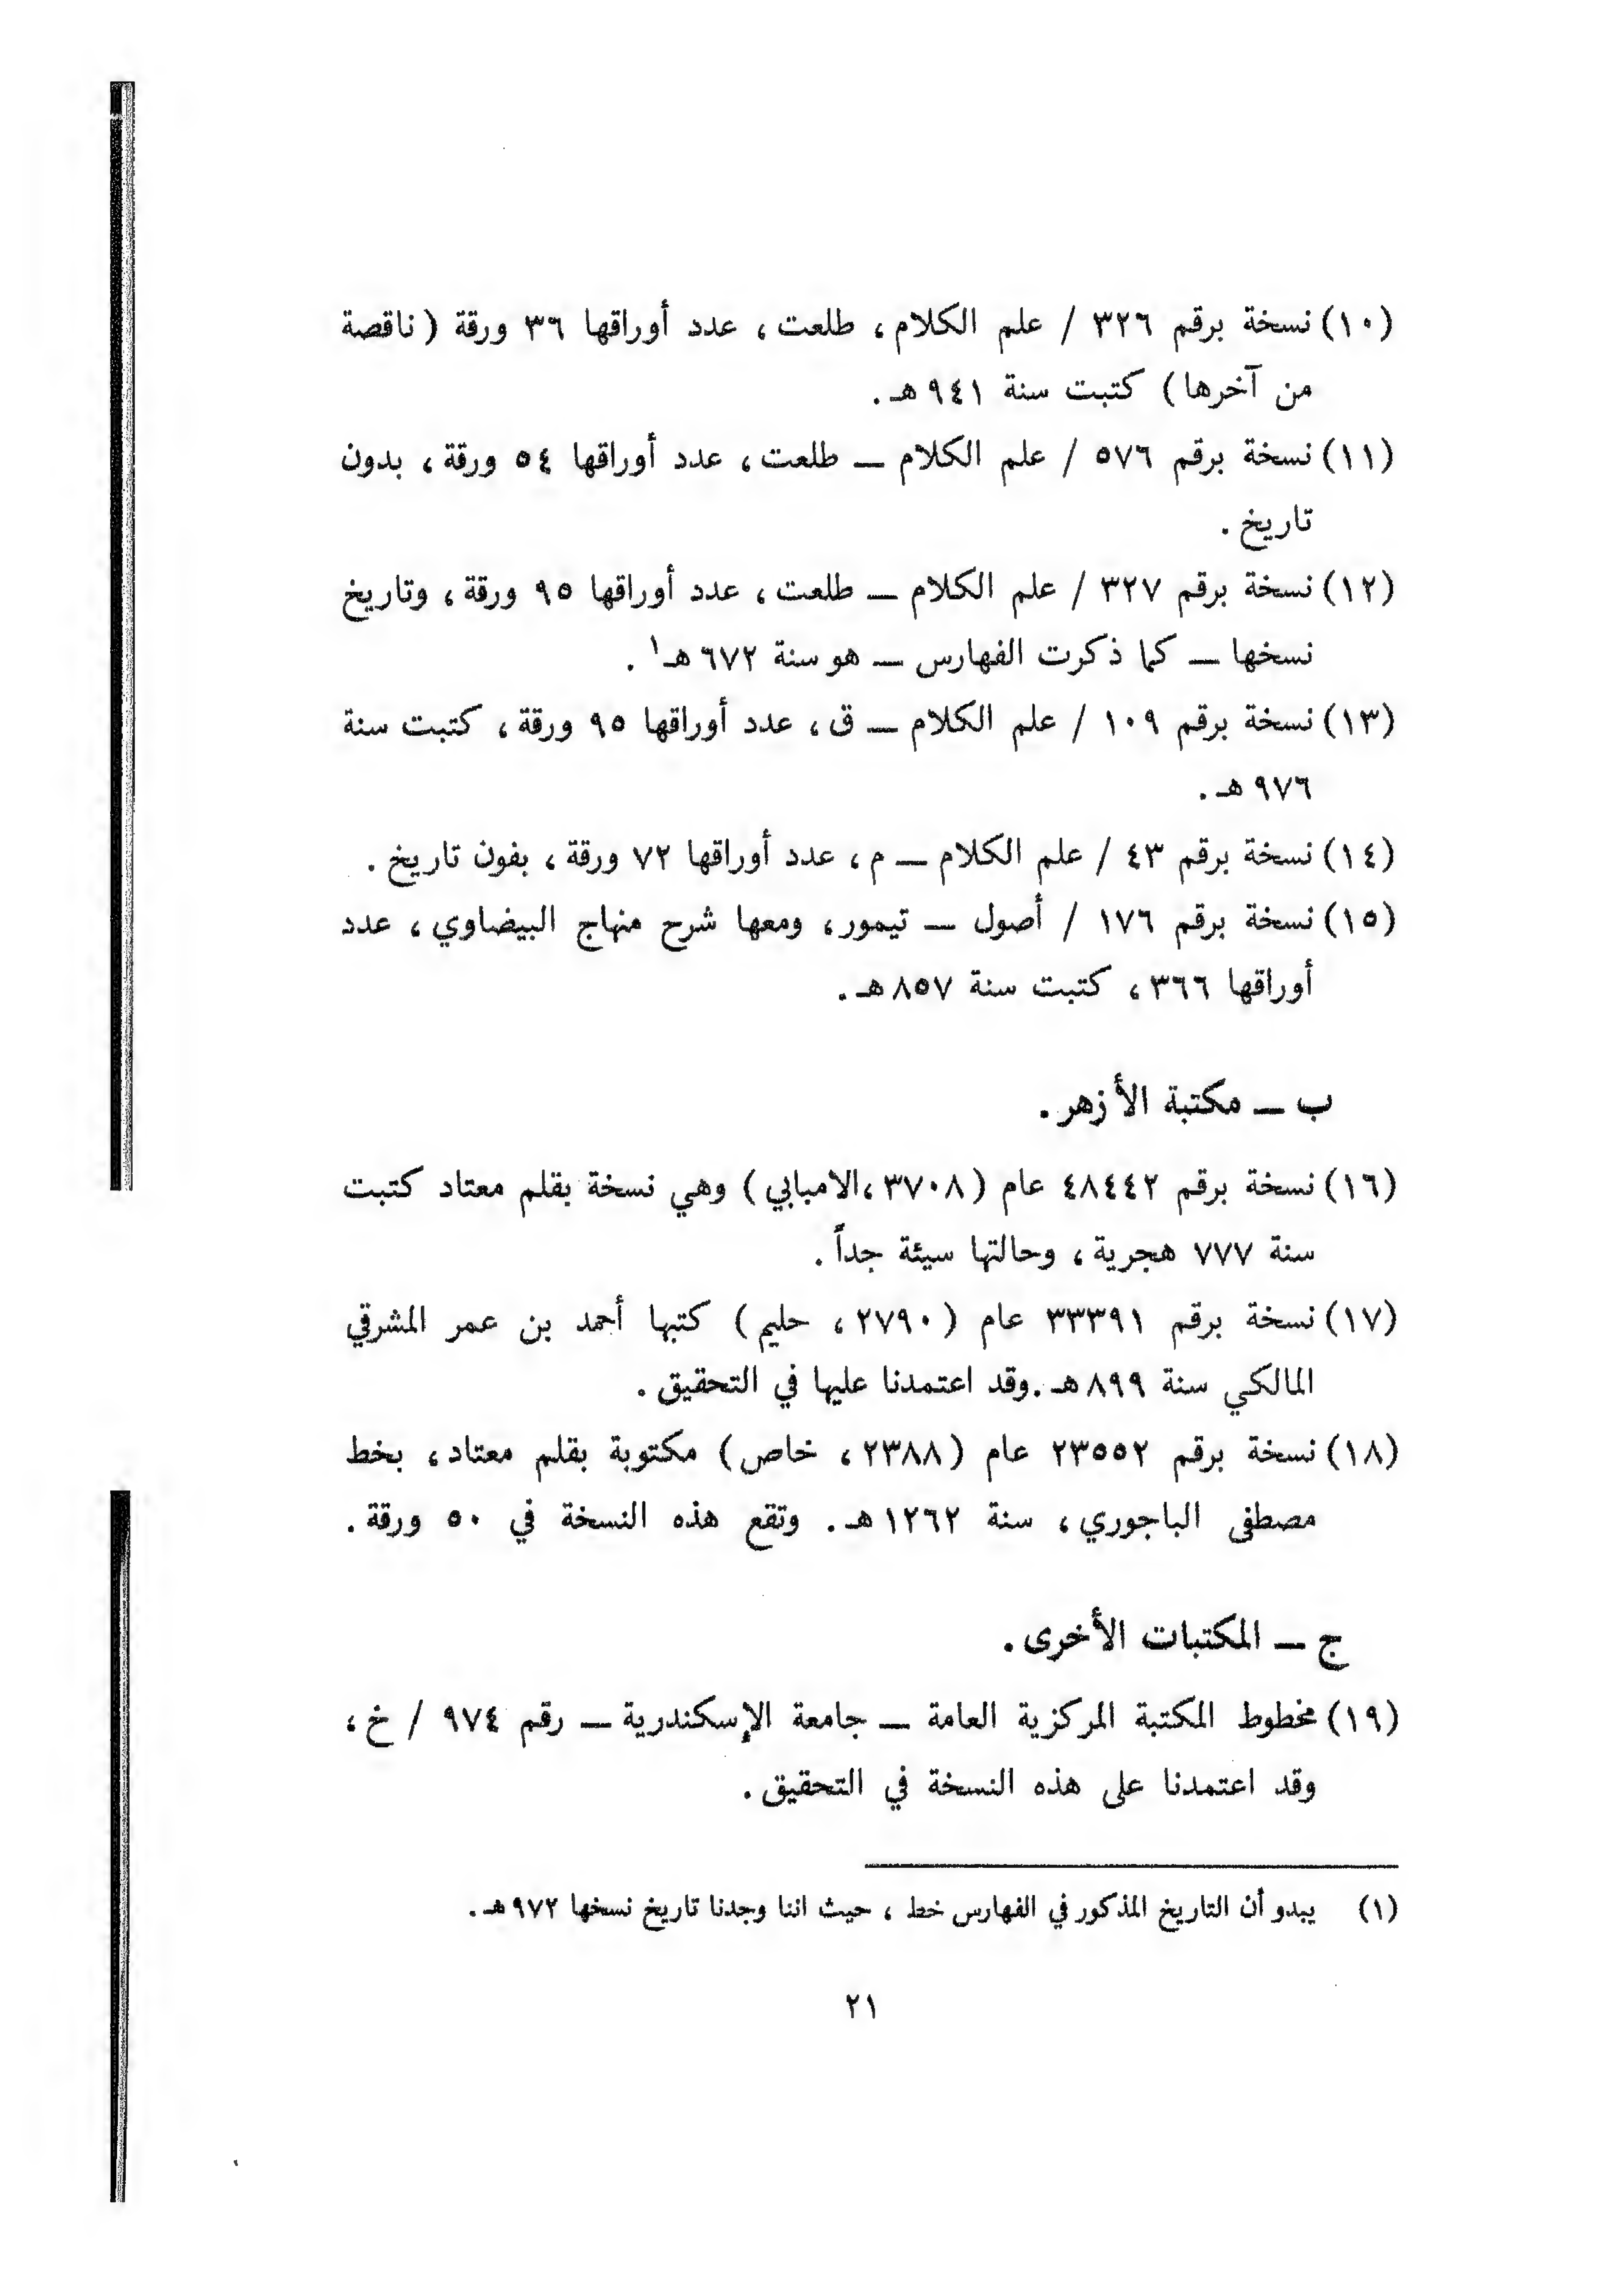 (١٠) نسخة برقم ٣٢٦ / علم الكلام ، طلعت ، عدد أوراقها ٣٦ ورقة ( ناقصة
من آخرها ) كتبت سنة ٩٤١ هـ .
(١١) نسخة برقم ٥٧٦ / علم الكلام — طلعت ، عدد أوراقها ٥٤ ورقة ، بدون
تاريخ .
(١٢) نسخة برقم ٣٢٧ / علم الكلام — طلعت ، عدد أوراقها ٩٥ ورقة ، وتاريخ
نسخها — كما ذكرت الفهارس — هو سنة ٦٧٢ هـ١ .
(١٣) نسخة برقم ١٠٩ / علم الكلام — ق ، عدد أوراقها ٩٥ ورقة ، كتبت سنة
٩٧٦ هـ .
(١٤) نسخة برقم ٤٣ / علم الكلام — م ، عدد أوراقها ٧٢ ورقة ، بفون تاريخ .
(١٥) نسخة برقم ١٧٦ / أصول — تيمور ، ومعها شرح منهاج البيضاوي ، عدد
أوراقها ٣٦٦ ، كتبت سنة ٨٥٧ هـ .
ب — مكتبة الأزهر .
(١٦) نسخة برقم ٤٨٤٤٢ عام ( ٣٧٠٨ ،الامبابي ) وهي نسخة بقلم معتاد كتبت
سنة ٧٧٧ هجرية ، وحالتها سيئة جداً .
(١٧) نسخة برقم ٣٣٣٩١ عام ( ٢٧٩٠ ، حليم ) كتبها أحمد بن عمر المشرقي
المالكي سنة ٨٩٩ هـ .وقد اعتمدنا عليها في التحقيق .
(١٨) نسخة برقم ٢٣٥٥٢ عام ( ٢٣٨٨ ، خاص ) مكتوبة بقلم معتاد ، بخط
مصطفى الباجوري ، سنة ١٢٦٢ هـ . وتقع هذه النسخة في ٥٠ ورقة .
ج — المكتبات الأخرى .
(١٩) مخطوط المكتبة المركزية العامة — جامعة الإسكندرية — رقم ٩٧٤ / خ ،
وقد اعتمدنا على هذه النسخة في التحقيق .
(١) يبدو أن التاريخ المذكور في الفهارس خط ، حيث اننا وجدنا تاريخ نسخها ٩٧٢ هـ .
٢١